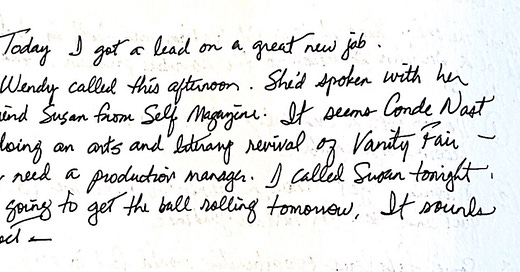 Today I got a lead on a great new job.
Wendy called this afternoon. She'd spoken with her
iend Susan from Self Magazine. It seems Conde Nast
doing an arts and literary revival of Vanity Fair —
need a production manager. I called Susan tonight.
going to get the ball rolling tomorrow. It sounds
ect —